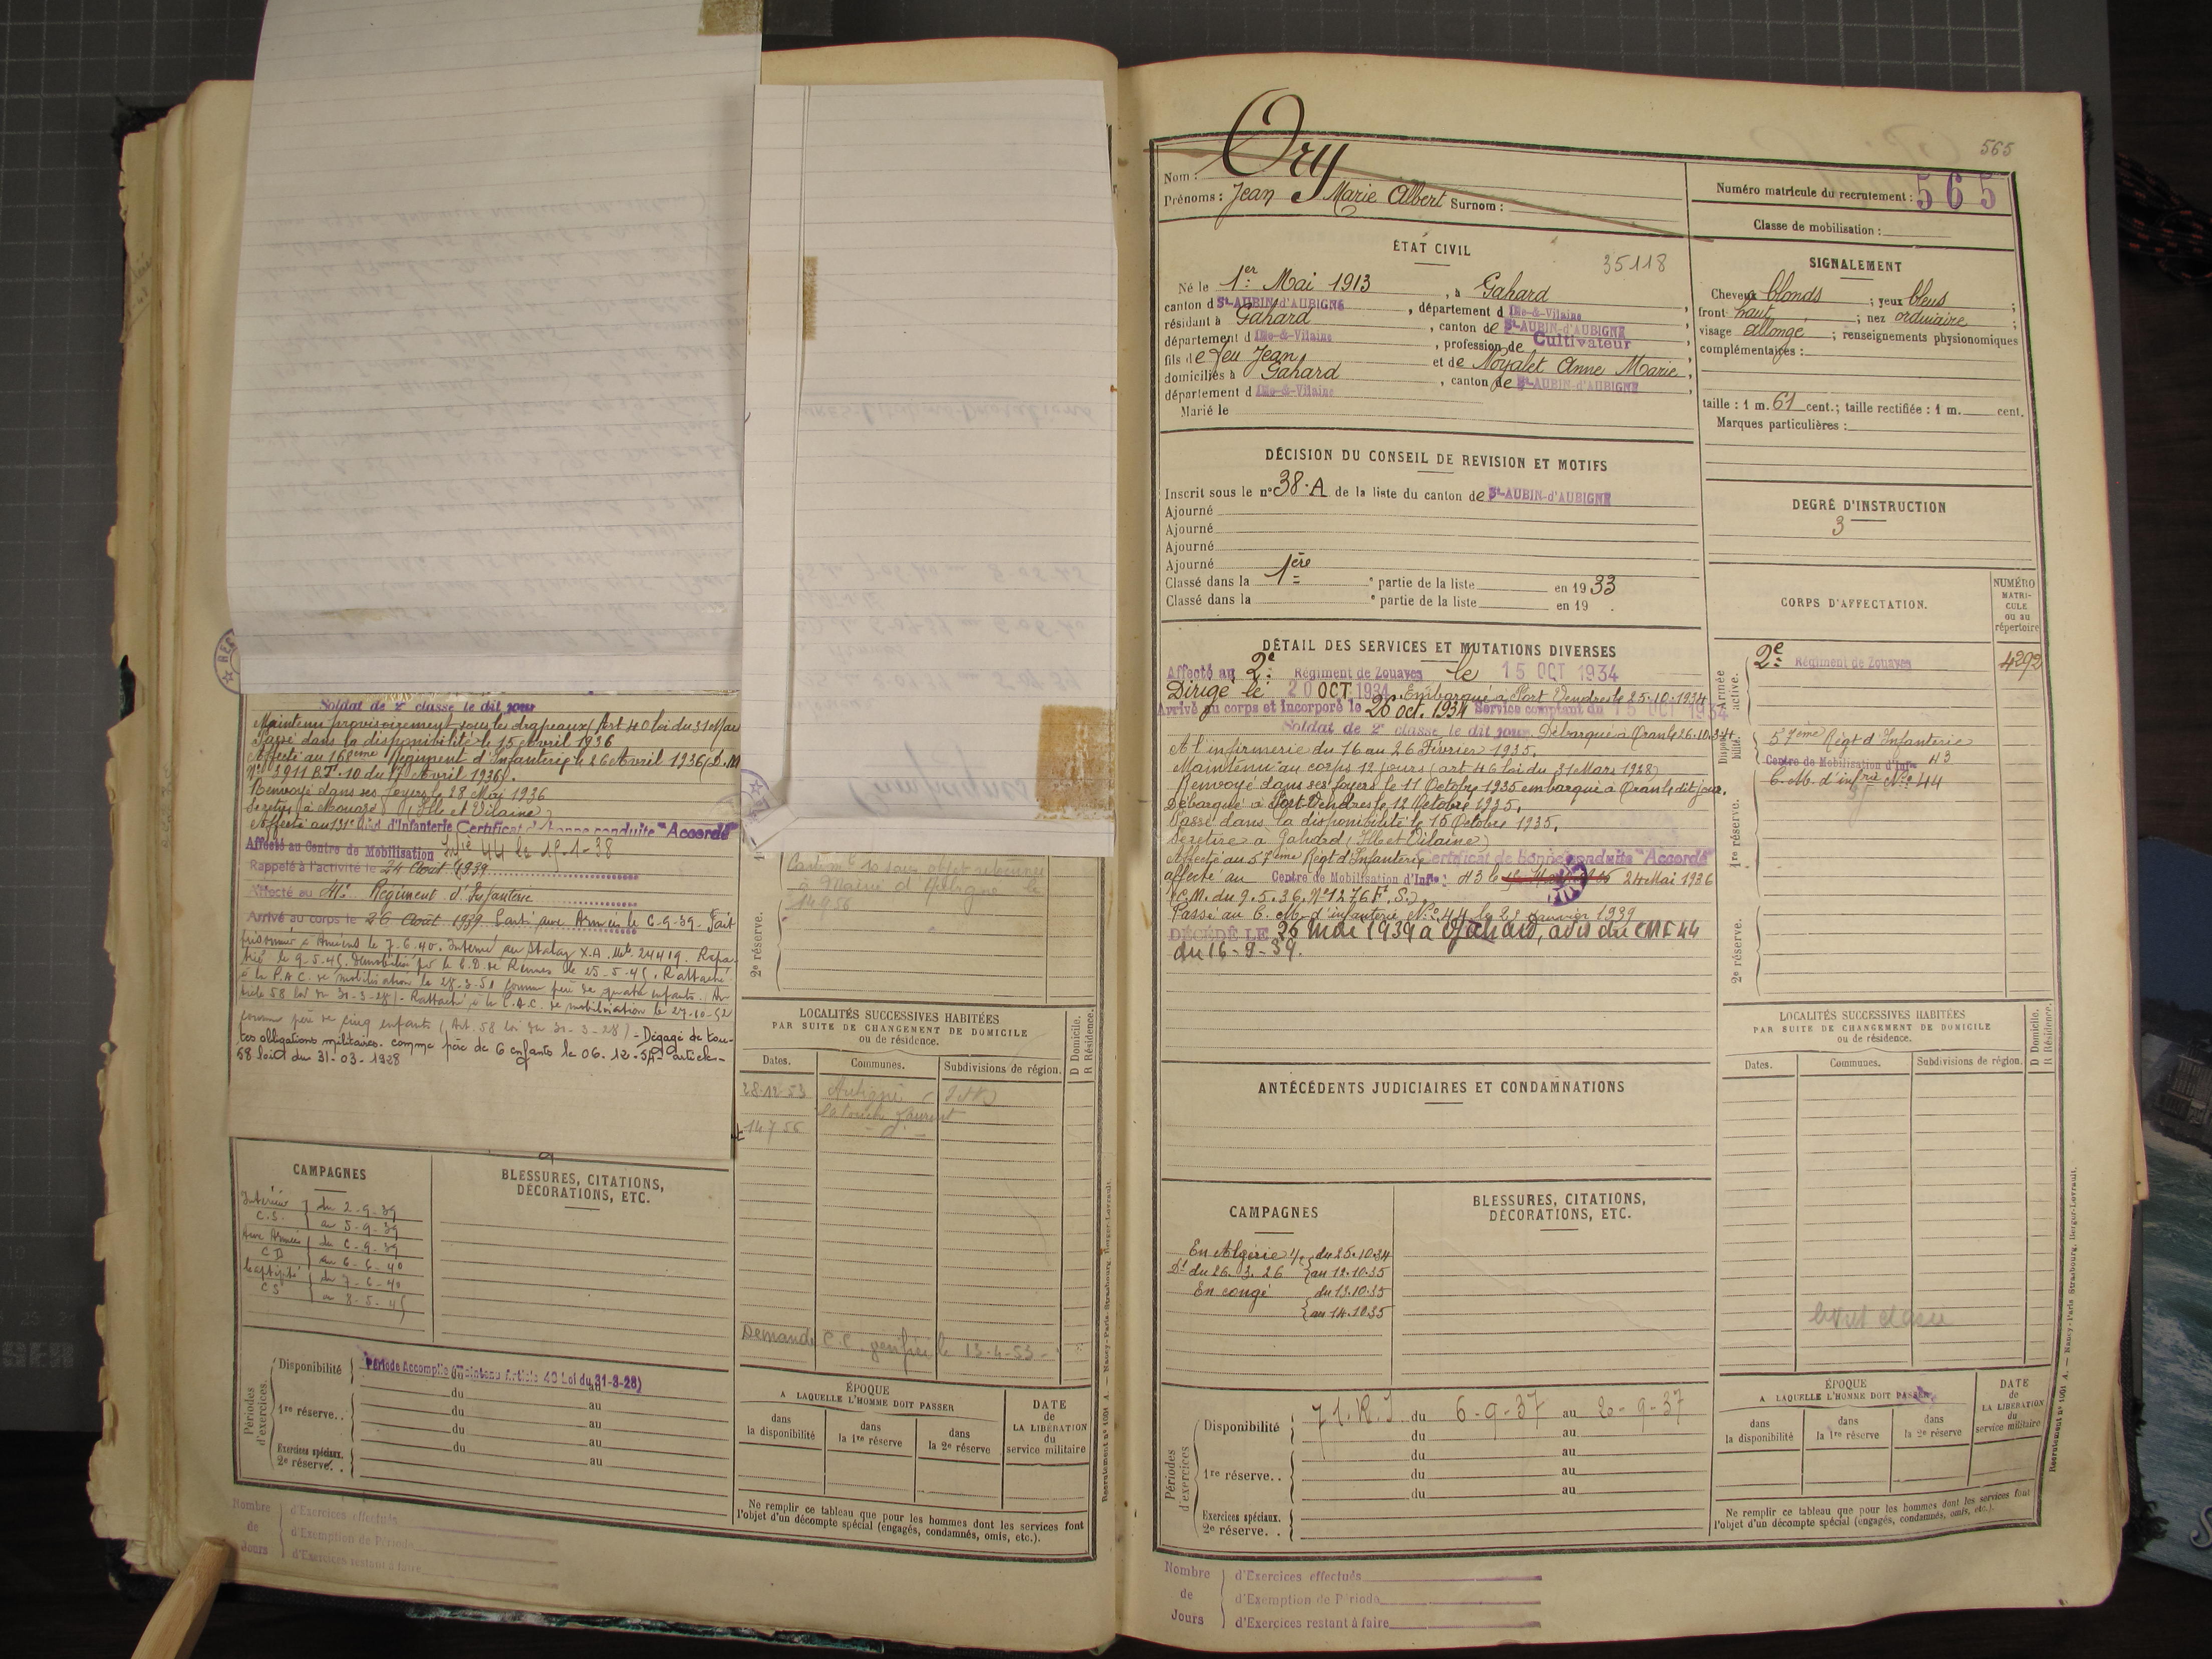 Soldat de 2e classe le dit jour
Maintenu provisoirement sous les drapeaux (Art 40 loi du 31 Mars
Passé dans la disponibilité le 15 Avril 1936
Affecté au 168eme Régiment d'Infanterie le 26 Avril 1936 (D.M
N° 3911 B.T. 10 du 17 Avril 1936).
Renvoyé dans ses foyers le 28 Mai 1936
Se retire à Mouazé (Ille et Vilaine)
Affecté au 131e Régt d'Infanterie Certificat de bonne conduite "Accordé"
Affecté au Centre de Mobilisation Infie 44 le 15-1-38
Rappelé à l'activité le 24 Août 1939
Affecté au Régiment d'Infanterie
Arrivé au corps le 26 Août 1939 Parti aux Armées le 6-9-39. Fait
prisonnier à Amiens le 7.6.40. Interné au Stalag X.A. Mle 24419. Rapa-
trié le 9-5-45. Démobilisé par le C.D. de Rennes le 25-5-45. Rattaché
à la P.A.C. de mobilisation le 28-3-51 comme père de quatre enfants. (Ar-
ticle 58 loi du 31-3-28) - Rattaché à la P.A.C. de mobilisation le 27-10-52
comme père de cinq enfants (Art. 58 loi du 31-3-28) - Dégagé de tou-
tes obligations militaires. comme père de 6 enfants le 06.12.54 - article
58 loi du 31-03-1928
CAMPAGNES
Intérieur du 2-9-39
C.S. au 5-9-39
Aux Armées du 6-9-39
CD au 6-6-40
Captivité du 7-6-40
CS au 8-5-45
BLESSURES, CITATIONS,
DÉCORATIONS, ETC.
Périodes
d'exercices.
Disponibilité Période Accomplie (Maintenu Article 40 Loi du 31-3-28)
du au
1re réserve.. du au
du au
du au
Exercices spéciaux.
2e réserve. .
Nombre
de
Jours
d'Exercices effectués
d'Exemption de Période
d'Exercices restant à faire
2e réserve.
à Mairie d'Aubigné le
14 9 56
LOCALITÉS SUCCESSIVES HABITÉES
PAR SUITE DE CHANGEMENT DE DOMICILE
ou de résidence.
Dates.
Communes.
Subdivisions de région.
D Domicile.
R Résidence.
28-12-53 Aubigné
la touche Laurent
14 7 56 - d° -
Demande C.C. le 13-4-53 -
ÉPOQUE
A LAQUELLE L'HOMME DOIT PASSER
dans
la disponibilité
dans
la 1re réserve
dans
la 2e réserve
DATE
de
LA LIBÉRATION
du
service militaire
Ne remplir ce tableau que pour les hommes dont les services font
l'objet d'un décompte spécial (engagés, condamnés, omis, etc.).
Recrutement n° 1001 A. — Nancy-Paris-Strasbourg, Berger-Levrault.
565
Nom : Ory
Prénoms : Jean Marie Albert Surnom :
Numéro matricule du recrutement : 565
Classe de mobilisation :
ÉTAT CIVIL
35118
Né le 1er Mai 1913, à Gahard
canton d St-AUBIN-d'AUBIGNÉ, département d Ille-&-Vilaine,
résidant à Gahard, canton de St-AUBIN-d'AUBIGNÉ,
département d Ille-&-Vilaine, profession de Cultivateur
fils de feu Jean et de Noyalet Anne Marie,
domiciliés à Gahard, canton de St-AUBIN-d'AUBIGNÉ
département d Ille-&-Vilaine
Marié le
SIGNALEMENT
Cheveux blonds ; yeux bleus ;
front haut ; nez ordinaire ;
visage allongé ; renseignements physionomiques
complémentaires :
taille : 1 m. 61 cent.; taille rectifiée : 1 m. cent.
Marques particulières :
DÉCISION DU CONSEIL DE REVISION ET MOTIFS
Inscrit sous le n° 38.A de la liste du canton de St-AUBIN-d'AUBIGNÉ
Ajourné
Ajourné
Ajourné
Ajourné
Classé dans la 1ère e partie de la liste en 1933
Classé dans la e partie de la liste en 19 .
DEGRÉ D'INSTRUCTION
3
CORPS D'AFFECTATION.
NUMÉRO
MATRI-
CULE
ou au
répertoire
Armée
active.
2e Régiment de Zouaves 4292
Disponi-
bilité.
57ème Régt d'Infanterie
Centre de Mobilisation d'Infie 43
C.M. d'infrie No 44
1re réserve.
2e réserve.
DÉTAIL DES SERVICES ET MUTATIONS DIVERSES
Affecté au 2e Régiment de Zouaves le 15 OCT 1934
Dirigé le 20 OCT 1934. Embarqué à Port Vendres le 25.10.1934
Arrivé au corps et incorporé le 26 oct. 1934 Service comptant du 15 OCT 1934
Soldat de 2e classe le dit jour. Débarqué à Oran le 26.10.34.
A l'infirmerie du 16 au 26 Février 1935.
Maintenu au corps 12 jours (art 46 loi du 31 Mars 1928)
Renvoyé dans ses foyers le 11 Octobre 1935 embarqué à Oran le dit jour.
Débarqué à Port-Vendres le 12 Octobre 1935.
Passé dans la disponibilité le 15 Octobre 1935.
Se retire à Gahard (Ille et Vilaine)
Affecté au 57ème Régt d'Infanterie Certificat de bonne conduite "Accordé"
affecté au Centre de Mobilisation d'Infie 43 le 24 Mai 1936
(C.M. du 9.5.36. N° 1276 F. S.).
Passé au C. M. d'infanterie No 44 le 23 Janvier 1939
DÉCÉDÉ LE 26 Mai 1939 à Gahard, avis du CMI 44
du 16-9-39.
ANTÉCÉDENTS JUDICIAIRES ET CONDAMNATIONS
LOCALITÉS SUCCESSIVES HABITÉES
PAR SUITE DE CHANGEMENT DE DOMICILE
ou de résidence.
Dates.
Communes.
Subdivisions de région.
D Domicile.
R Résidence.
CAMPAGNES
En Algérie du 25.10.34
Dt du 26. 3. 26 au 12.10.35
En congé du 13.10.35
au 14.10.35
BLESSURES, CITATIONS,
DÉCORATIONS, ETC.
Périodes
d'exercices
Disponibilité 71.R.I du 6-9-37 au 26-9-37
du au
1re réserve.. du au
du au
du au
Exercices spéciaux.
2e réserve. .
ÉPOQUE
A LAQUELLE L'HOMME DOIT PASSER
dans
la disponibilité
dans
la 1re réserve
dans
la 2e réserve
DATE
de
LA LIBÉRATION
du
service militaire
Ne remplir ce tableau que pour les hommes dont les services font
l'objet d'un décompte spécial (engagés, condamnés, omis, etc.).
Recrutement n° 1001 A. — Nancy-Paris-Strasbourg, Berger-Levrault.
Nombre
de
Jours
d'Exercices effectués
d'Exemption de Période
d'Exercices restant à faire